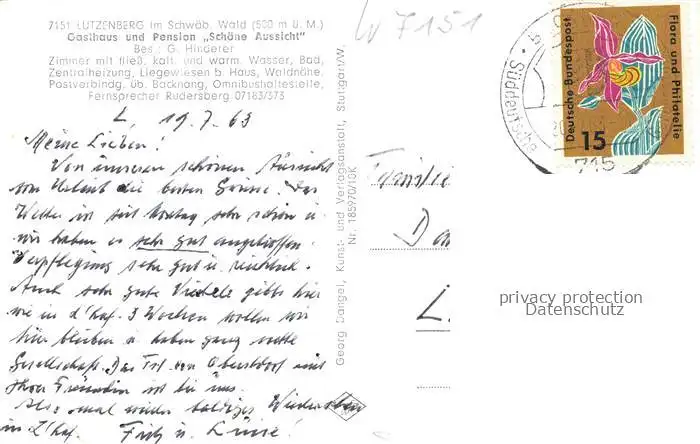 7151 LUTZENBERG im Schwäb. Wald (500 m ü. M.)
Gasthaus und Pension „Schöne Aussicht"
Bes.: G. Hinderer
Zimmer mit fließ. kalt. und warm. Wasser, Bad,
Zentralheizung, Liegewiesen b. Haus, Waldnähe,
Postverbindg. üb. Backnang, Omnibushaltestelle,
Fernsprecher Rudersberg 07183/373
W 7151
L, 19.7.63
Meine Lieben!
Von unserem schönen Aussicht
vom Urlaub die besten Grüsse! Das
Wetter ist seit Montag sehr schön u.
wir haben es sehr gut angetroffen.
Verpflegung sehr gut u. reichlich.
Auch sehr gute Viertele gibts hier
wie in L'haf. 3 Wochen wollen wir
hier bleiben u. haben ganz nette
Gesellschaft. Das Frl. von Oberstdorf mit
Ihrer Freundin ist bei uns.
Also mal wieder baldiges Wiedersehen
in L'haf. Fritz u. Luise!
Georg Dangel, Kunst- und Verlagsanstalt, Stuttgart/W.
Nr. 185970/10K
Familie
L
Deutsche Bundespost
Flora und Philatelie
15
Süddeutsche
715
privacy protection
Datenschutz